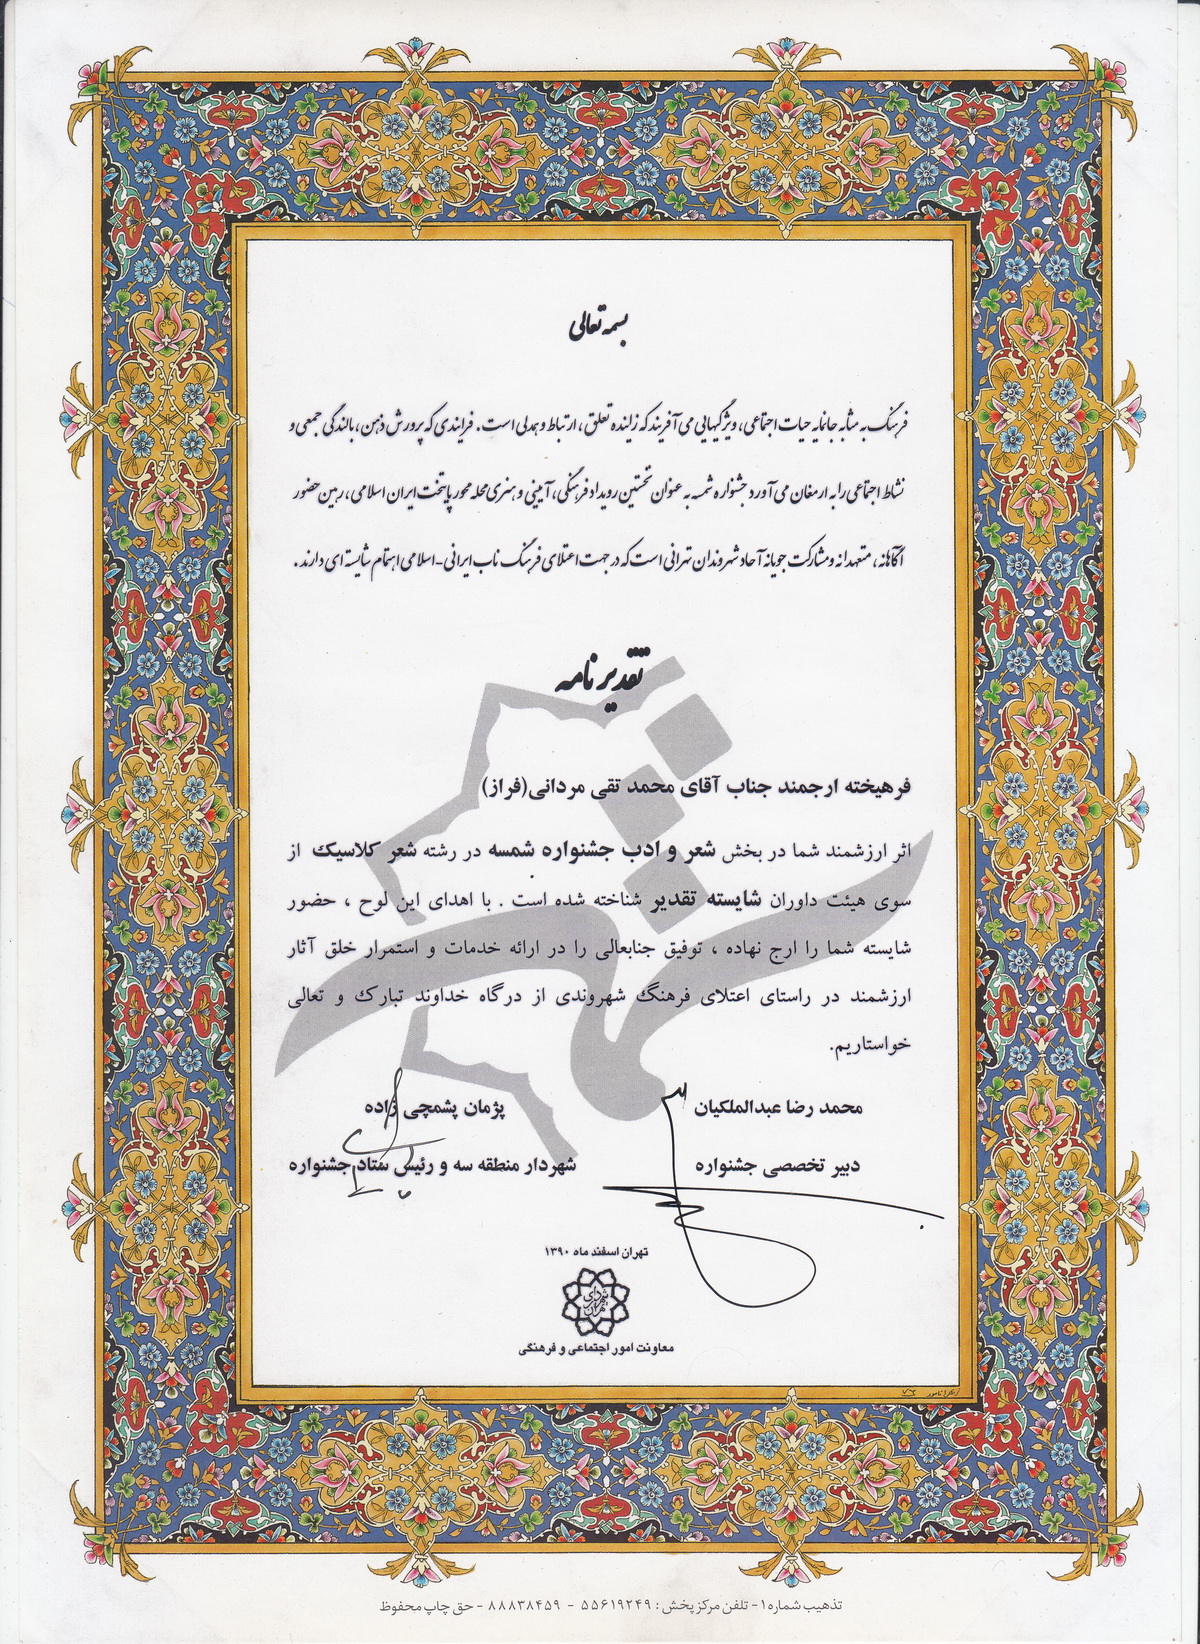 بسمه تعالی
فرهنگ به مثابه جانمایه حیات اجتماعی، ویژگیهایی می آفریند که زاینده تعلق، ارتباط و همدلی است. فرایندی که پرورش ذهن، بالندگی جمعی و
نشاط اجتماعی را به ارمغان می آورد جشنواره شمسه به عنوان نخستین رویداد فرهنگی، آیینی و هنری محله محور پایتخت ایران اسلامی، رهین حضور
آگاهانه، متعهدانه و مشارکت جویانه آحاد شهروندان تهرانی است که در جهت اعتلای فرهنگ ناب ایرانی-اسلامی اهتمام شایسته ای دارند.
تقدیرنامه
فرهیخته ارجمند جناب آقای محمد تقی مردانی(فراز)
اثر ارزشمند شما در بخش شعر و ادب جشنواره شمسه در رشته شعر کلاسیک از
سوی هیئت داوران شایسته تقدیر شناخته شده است . با اهدای این لوح ، حضور
شایسته شما را ارج نهاده ، توفیق جنابعالی را در ارائه خدمات و استمرار خلق آثار
ارزشمند در راستای اعتلای فرهنگ شهروندی از درگاه خداوند تبارک و تعالی
خواستاریم.
محمد رضا عبدالملکیان پژمان پشمچی زاده
دبیر تخصصی جشنواره شهردار منطقه سه و رئیس ستاد جشنواره
تهران اسفند ماه ۱۳۹۰
شهرداری تهران
معاونت امور اجتماعی و فرهنگی
تذهیب شماره ۱- تلفن مرکز پخش : ۵۵۶۱۹۲۴۹ - ۸۸۸۳۸۴۵۹ - حق چاپ محفوظ